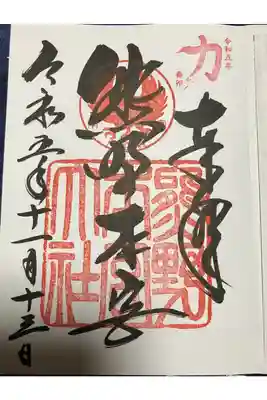 力
令和五年
奉拝
熊野本宮
熊野
本宮
大社
令和五年十一月十三日